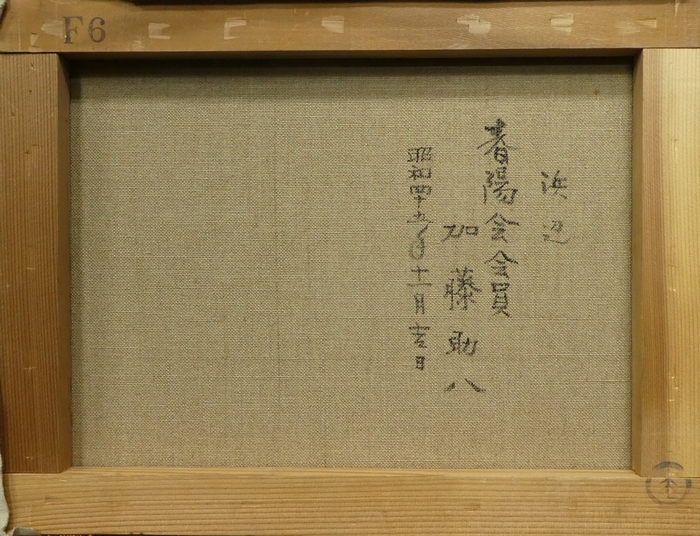 F6
浜辺
春陽会会員
加藤助八
昭和四十五年十一月吉日